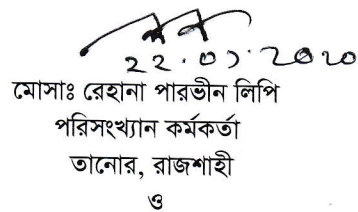 22.01.2020
মোসাঃ রেহানা পারভীন লিপি
পরিসংখ্যান কর্মকর্তা
তানোর, রাজশাহী
ও